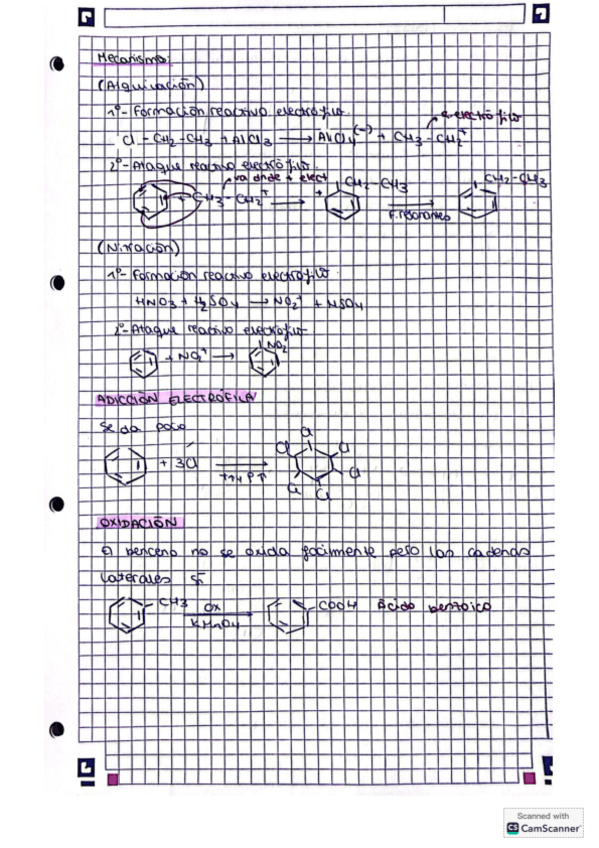 Mecanismo:
(Alquilación)
1º- Formación reactivo electrófilo.
e. electrófilo
Cl-CH2-CH3 + AlCl3 → AlCl4(-) + CH3-CH2+
2º- Ataque reactivo electrófilo.
va dnde + elect
+ CH3-CH2+ → + CH2-CH3 → CH2-CH3
F. resonantes
(Nitración)
1º- Formación reactivo electrófilo.
HNO3 + H2SO4 → NO2+ + HSO4
2º- Ataque reactivo electrófilo
+ NO2+ → NO2
ADICCIÓN ELECTRÓFILA
Se da poco
+ 3Cl → Cl Cl Cl Cl Cl Cl
T↑ y P↑
OXIDACIÓN
El benceno no se oxida facilmente pero las cadenas
laterales sí
CH3 OX → COOH Ácido benzoico
KMnO4
Scanned with
CS CamScanner